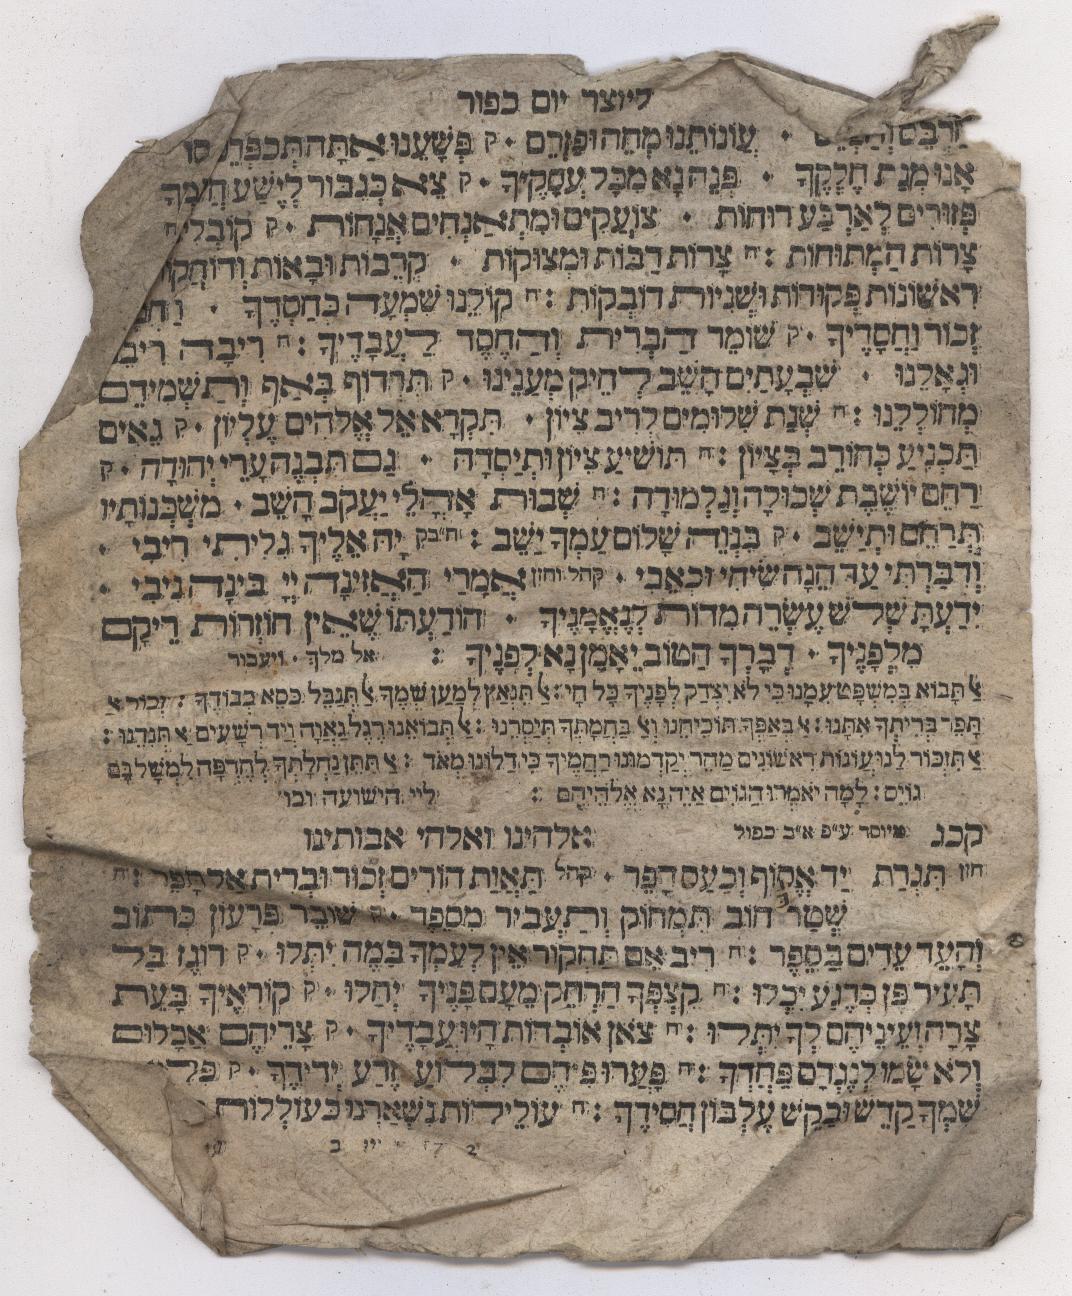 ליוצר יום כפור
עֲוֹנוֹתֵנוּ מְחֵה וּפַּזְרֵם · ק פְּשָׁעֵנוּ אַתָּה תְכַפְּרֵם סו
אָנוּ מְנָת חֶלְקֶךָ · פְּנֵה נָא מִכָּל עֲסָקֶיךָ · ק צֵא כְּגִבּוֹר לְיֵשַׁע חֻמֶךָ
פְּזוּרִים לְאַרְבַּע רוּחוֹת · צוֹעֲקִים וּמִתְאַנְּחִים אֲנָחוֹת · ק קוֹבְלִים
צָרוֹת הַמְּתוּחוֹת : ח צָרוֹת רַבּוֹת וּמְצוּקוֹת · קְרֵבוֹת וּבָאוֹת וְדוֹחֲקוֹת
רִאשׁוֹנוֹת פְּקוּדוֹת וּשְׁנִיּוֹת דּוֹבְקוֹת : ח קוֹלֵנוּ שִׁמְעָה כְּחַסְדֶּךָ ·
זְכוֹר וַחֲסָדֶיךָ · ק שׁוֹמֵר הַבְּרִית וְהַחֶסֶד לַעֲבָדֶיךָ : ח רִיבָה רִיבֵנוּ
וּגְאָלֵנוּ · שִׁבְעָתַיִם הָשֵׁב לְחֵיק מְעַנֵּינוּ · ק תִּרְדּוֹף בְּאַף וְתַשְׁמִידֵם
מְחוֹלְלֵנוּ : ח שְׁנַת שִׁלּוּמִים לְרִיב צִיּוֹן · תִּקְרָא אֵל אֱלֹהִים עֶלְיוֹן · ק גֵּאִים
תַּכְנִיעַ כְּחוֹרֵב בְּצָיוֹן : ח תּוֹשִׁיעַ צִיּוֹן וּתְיַסְּדָה · גַּם תִּבְנֶה עָרֵי יְהוּדָה · ק
רַחֵם יוֹשֶׁבֶת שְׁכוּלָה וְגַלְמוּדָה : ח שְׁבוּת אָהֳלֵי יַעֲקֹב הָשֵׁב · מִשְׁכְּנוֹתָיו
תְּרַחֵם וּתְיַשֵּׁב · ק בִּנְוֵה שָׁלוֹם עַמְּךָ יֵשֵׁב : ח״בק יָהּ אֵלֶיךָ גִּלִּיתִי רִיבִי ·
וְדִבַּרְתִּי עַד הֵנָּה שִׂיחִי וּכְאֵבִי · קהל וחזן אֲמָרַי הַאֲזִינָה יְיָ בִּינָה נִיבִי ·
יְדַעְתָּ שְׁלֹשׁ עֶשְׂרֵה מִדּוֹת לְנֶאֱמָנֶיךָ · הוֹדַעְתּוֹ שֶׁאֵין חוֹזְרוֹת רֵיקָם
מִלְּפָנֶיךָ · דְּבָרְךָ הַטּוֹב יֵאָמֵן נָא לְפָנֶיךָ : אל מלך · ויעבור
אַל תָּבוֹא בְּמִשְׁפָּט עִמָּנוּ כִּי לֹא יִצְדַּק לְפָנֶיךָ כָּל חָי : אַל תִּנְאַץ לְמַעַן שִׁמְךָ אַל תְּנַבֵּל כִּסֵּא כְבוֹדֶךָ : זְכוֹר אַל
תָּפֵר בְּרִיתְךָ אִתָּנוּ : אַל בְּאַפְּךָ תוֹכִיחֵנוּ וְאַל בַּחֲמָתְךָ תְיַסְּרֵנוּ : אַל תְּבוֹאֵנוּ רֶגֶל גַּאֲוָה וְיַד רְשָׁעִים אַל תְּנִדֵנוּ :
אַל תִּזְכּוֹר לָנוּ עֲוֹנוֹת רִאשׁוֹנִים מַהֵר יְקַדְּמוּנוּ רַחֲמֶיךָ כִּי דַלּוֹנוּ מְאֹד : אַל תִּתֵּן נַחֲלָתְךָ לְחֶרְפָּה לִמְשָׁל בָּם
גּוֹיִם : לָמָּה יֹאמְרוּ הַגּוֹיִם אַיֵּה נָא אֱלֹהֵיהֶם : ליי הישועה וכו׳
קכג מיוסד ע״פ א״ב כפול אלהינו ואלהי אבותינו
חזן תִּגְרַת יַד אֱקוֹף וְכַעַס הָפֵר · קהל תַּאֲוַת הוֹרִים זְכוֹר וּבְרִית אַל תָּפֵר : ח
שְׁטַר חוֹב תִּמְחוֹק וְתַעֲבִיר מִסֵּפֶר · ק שׁוֹבֵר פֵּרָעוֹן כְּתוֹב
וְהָעֵד עֵדִים בַּסֵּפֶר : ח רִיב אִם תַּחְקוֹר אֵין לְעַמְּךָ בַּמֶּה יִתְלוּ · ק רוֹגֶז בַּל
תָּעִיר פֶּן כְּרֶגַע יִכְלוּ : ח קִצְפְּךָ הַרְחֵק מֵעַם פָּנֶיךָ יְחַלּוּ · ק קוֹרְאֶיךָ בְּעֵת
צָרָה וְעֵינֵיהֶם לְךָ יִתְלוּ : ח צֹאן אוֹבְדוֹת הָיוּ עֲבָדֶיךָ · ק צָרֵיהֶם אֲכָלוּם
וְלֹא שָׂמוּ לְנֶגְדָּם פַּחְדֶּךָ : ח פָּעֲרוּ פִיהֶם לִבְלוֹעַ זֶרַע יְדִידֶךָ · ק
שִׁמְךָ קַדֵּשׁ וּבַקֵּשׁ עֶלְבּוֹן חֲסִידֶךָ : ח עוֹלֵילוֹת נִשְׁאַרְנוּ כְּעוֹלְלוֹת